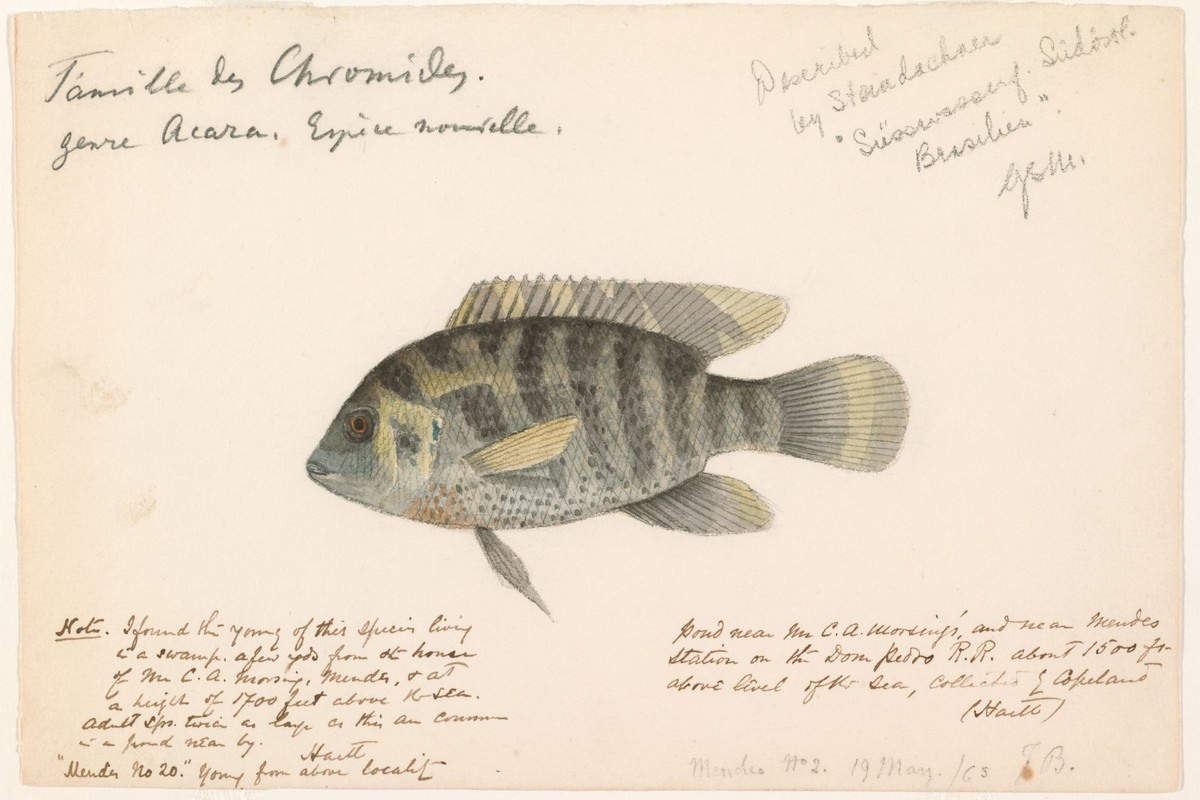 Famille des Chromides.
genre Acara. Espèce nouvelle.
Described
by Steindachner
"Süsswasserf. Südöstl.
Brasilien".
Note. I found the young of this species living
in a swamp. a few yds from the house
of Mr C. A. Morsing, Mendes, & at
a height of 1700 feet above the sea.
adult sps. twice as large as this are common
in a pond near by.
Hartt
"Mendes No 20." Young from above locality
pond near Mr C. A. Morsing's, and near Mendes
Station on the Dom Pedro R.R. about 1500 ft
above level of the sea, collected by Copeland
(Hartt)
Mendes No 2. 19 May. /65 J. B.